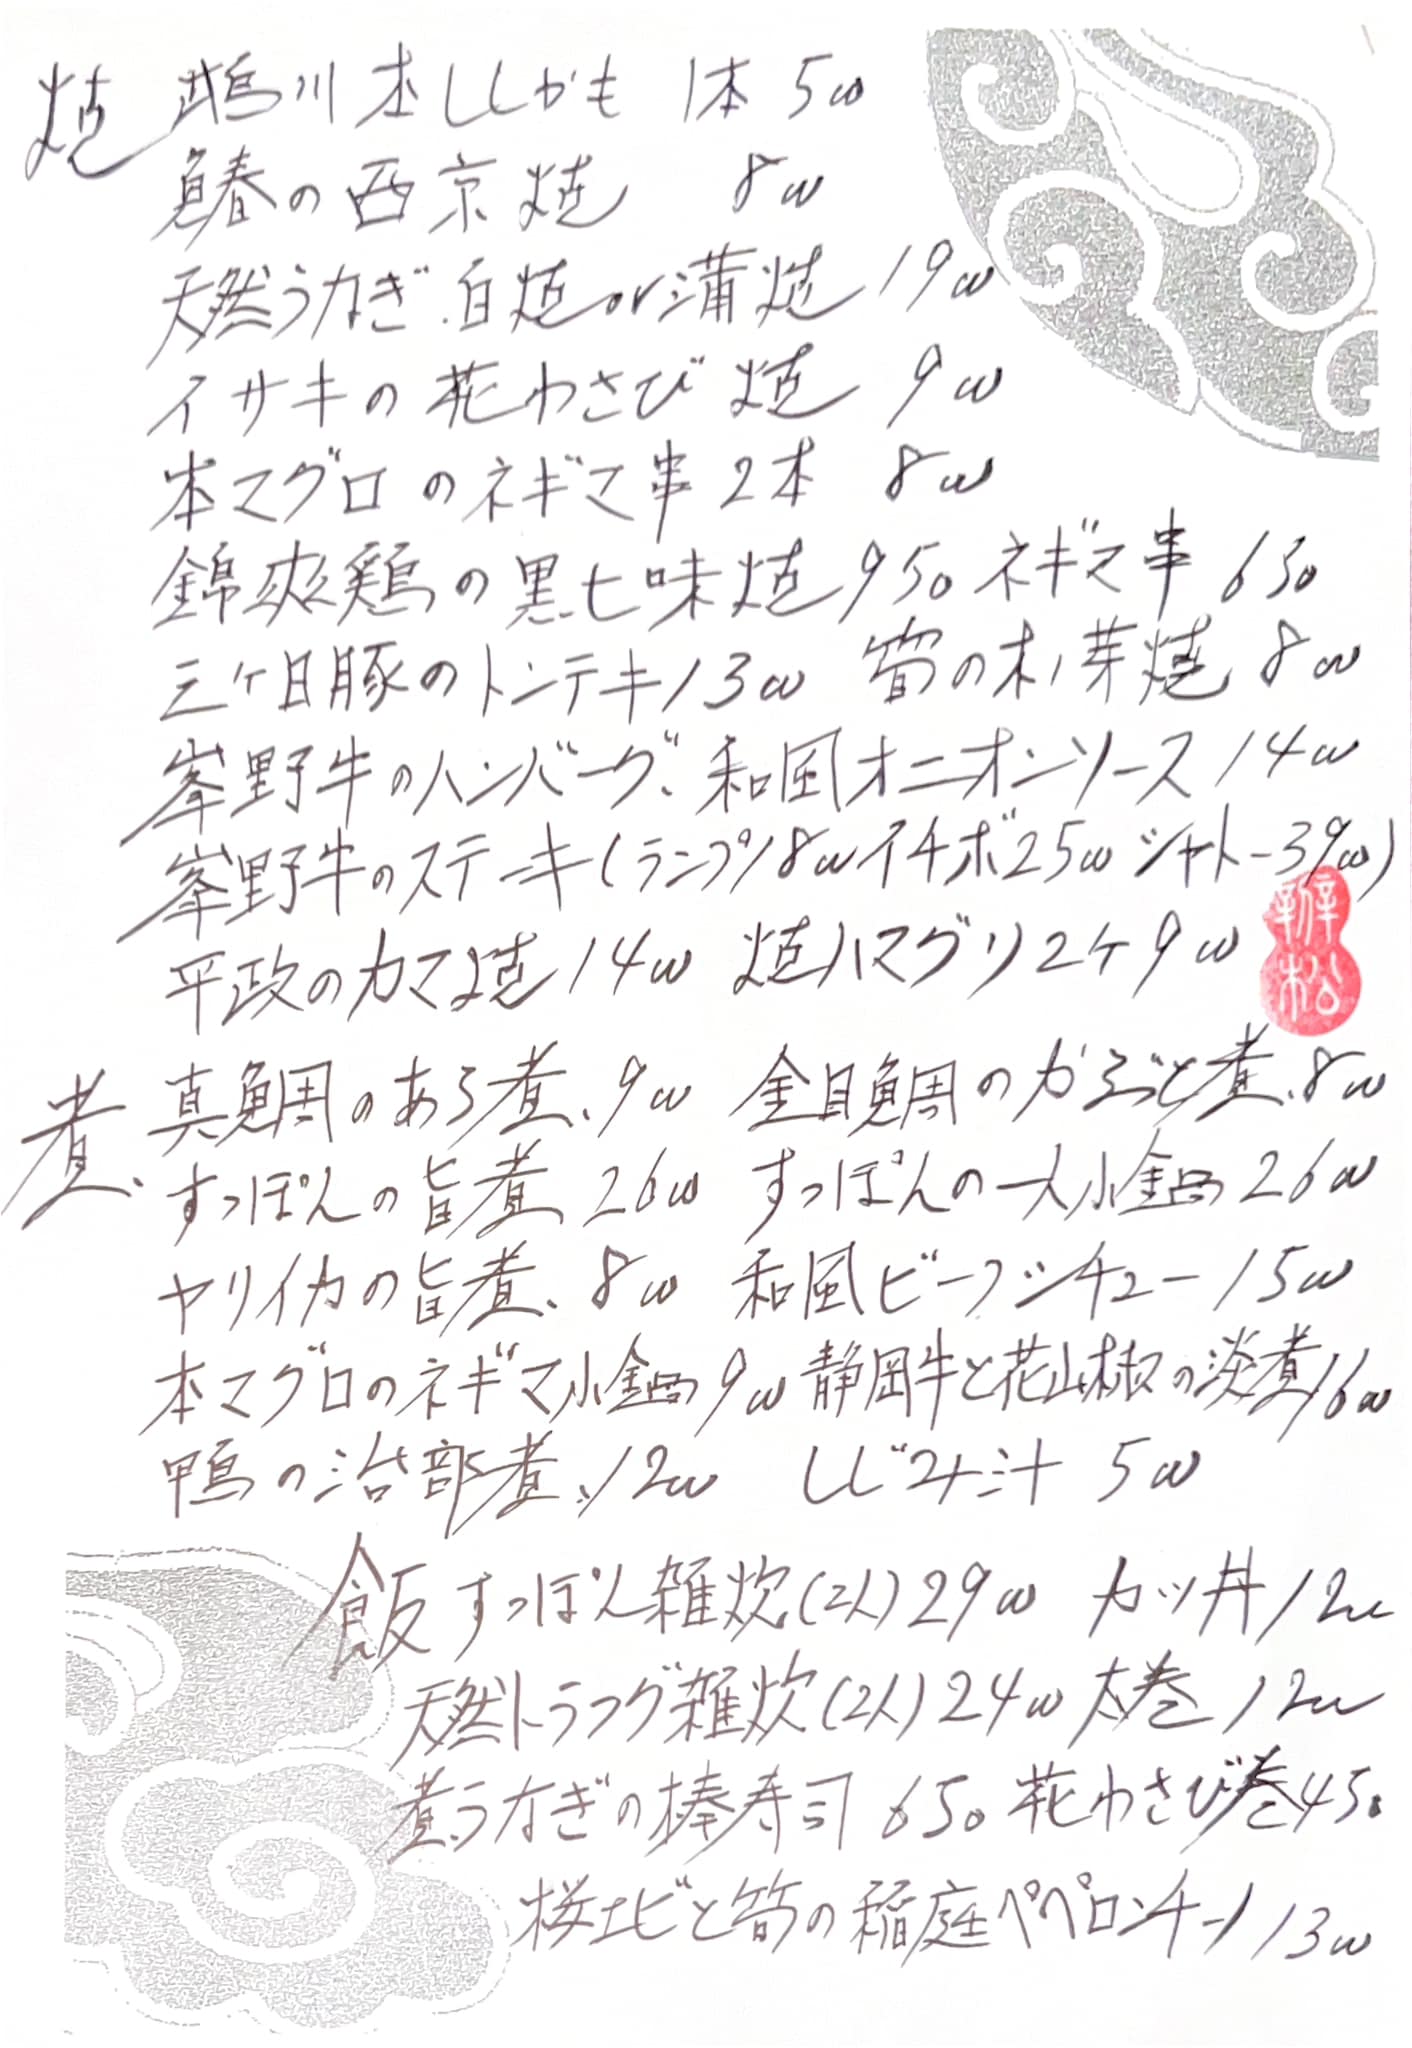 焼 鵡川本ししゃも 1本 500
鰆の西京焼 800
天然うなぎ.白焼or蒲焼 1900
イサキの花わさび焼 900
本マグロのネギマ串2本 800
錦爽鶏の黒七味焼 950 ネギマ串 650
三ケ日豚のトンテキ 1300 筍の木ノ芽焼 800
峯野牛のハンバーグ、和風オニオンソース 1400
峯野牛のステーキ(ランプ1800 イチボ2500 シャトー3900)
平政のカマ焼 1400 焼ハマグリ2ケ 900
辧松
煮 真鯛のあら煮 900 金目鯛のかぶと煮 800
すっぽんの旨煮 2600 すっぽんの一人小鍋 2600
ヤリイカの旨煮 800 和風ビーフシチュー 1500
本マグロのネギマ小鍋 900 静岡牛と花山椒の淡煮 1600
鴨の治部煮 1200 しじみ汁 500
飯 すっぽん雑炊(2人) 2900 カツ丼 1200
天然トラフグ雑炊(2人) 2400 太巻 1200
煮うなぎの棒寿司 650 花わさび巻 450
桜エビと筍の稲庭ペペロンチーノ 1300